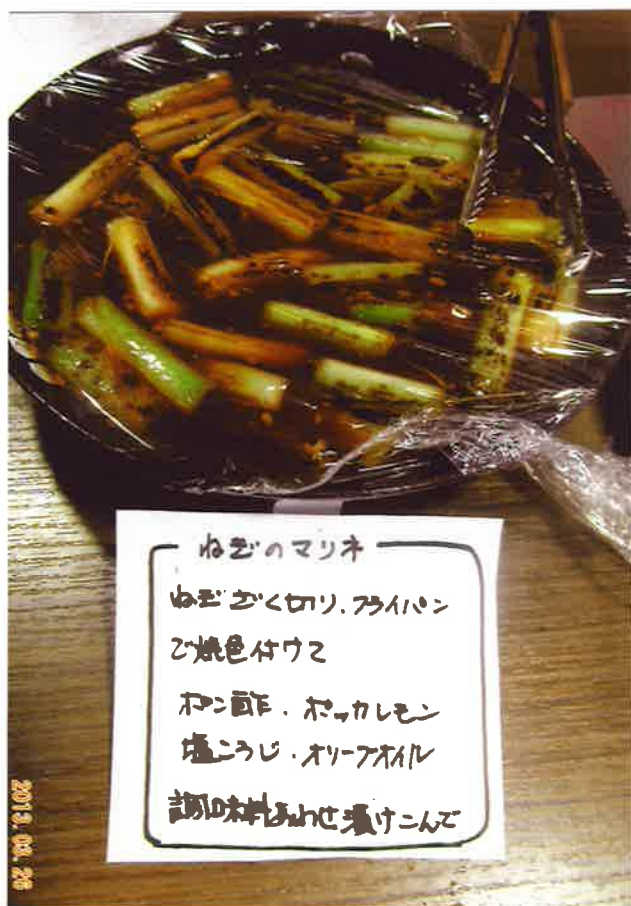 ねぎのマリネ
ねぎざく切り、フライパン
で焼色付けて
ポン酢、ポッカレモン
塩こうじ、オリーブオイル
調味料あわせ漬けこんで
2013. 03. 26